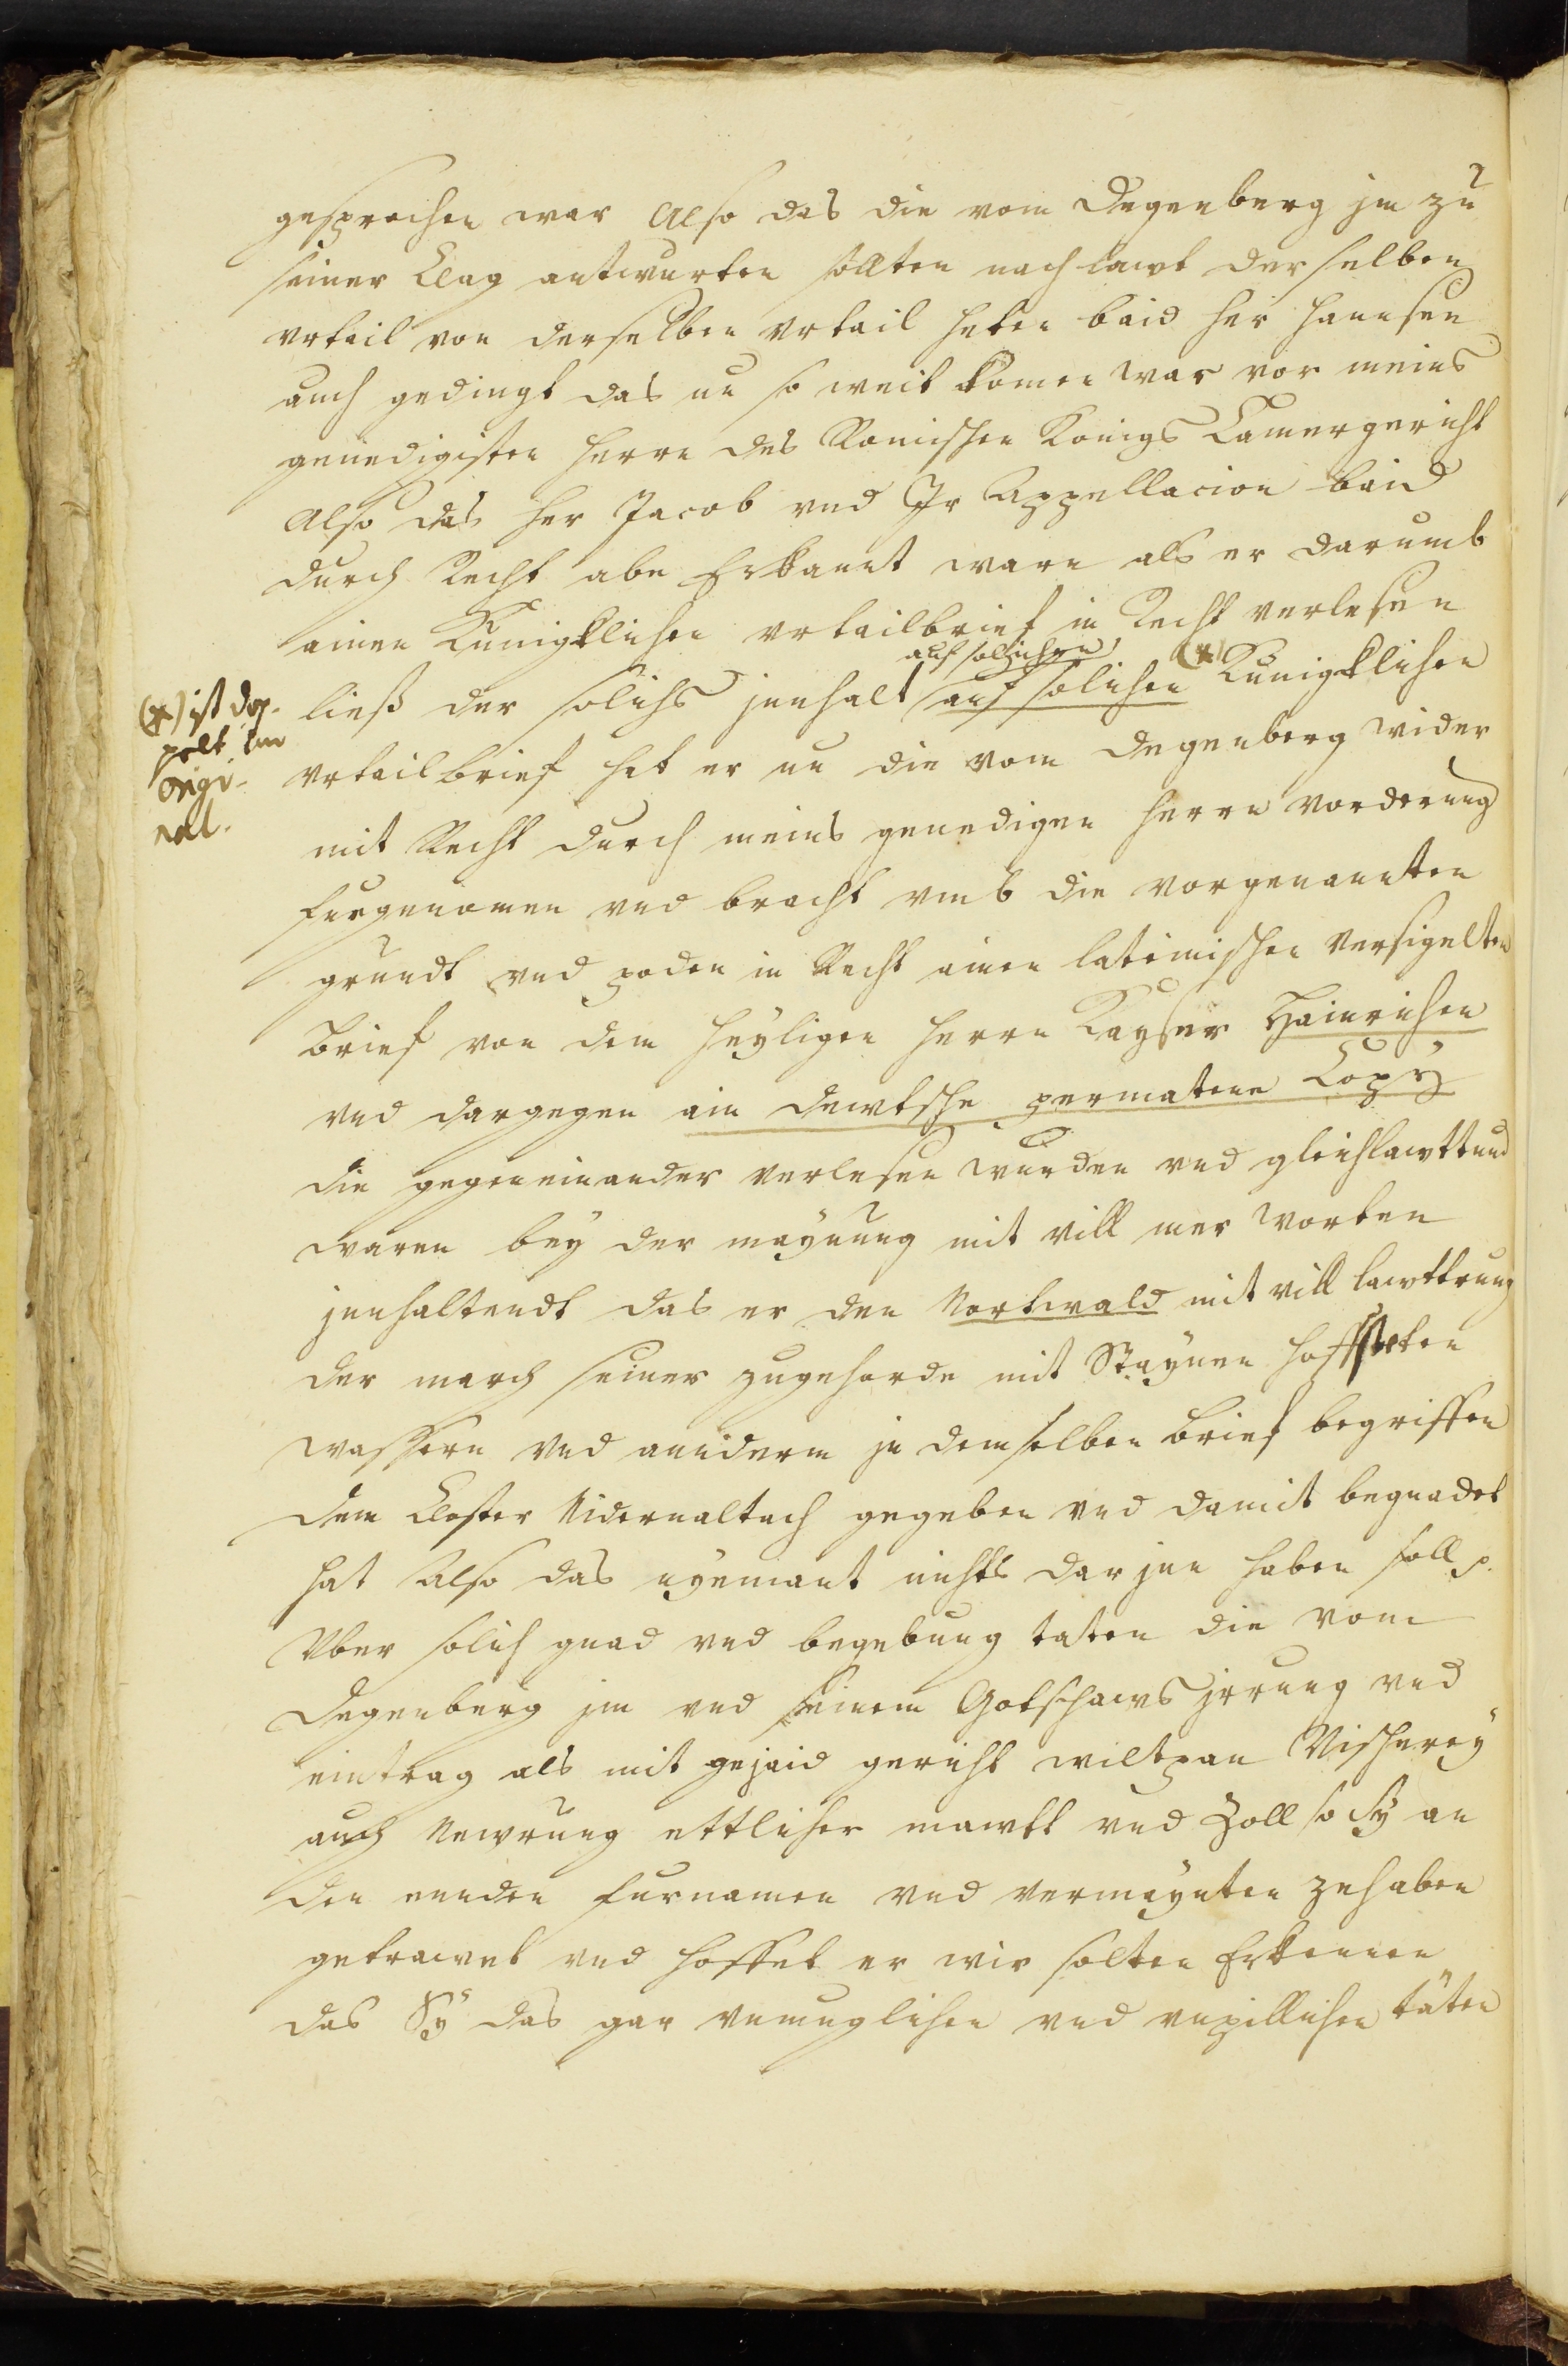 gesprochen war Also das die vom Degenberg jm zů
seiner Clag antwurten sollten nach lawt derselben
vrtail von derselben vrtail heten baid her Hannsen
auch gedingt das nu so weit komen war vor meins
genedigisten Herrn des Romischen Konigs Camergericht
Also das her Jacob vnd Jr Appellacion baid
durch Recht abe Erkannt warn als er darumb
ainen Kunigklichen vrtailbrief in Recht verlesen
auf solichen (x)
ließ der solichs jnnhalt auf solichen Kunigklichen
(x) ist dop-
pelt im
Origi-
nal.
vrtailbrief het er nu die vom Degenberg wider
mit Recht durch meins genedigen Herrn vorderung
furgenomen vnd bracht vmb die vorgenannten
grundt vnd poden in Recht ainen lateinischen versigelten
Brief von dem heyligen Herrn Kayser Hainrichen
vnd dargegen ain dewtsche permatene Copÿ
die gegeneinander verlesen wurden vnd gleichlawttund
waren beÿ der maÿnung mit vill mer worten
jnnhaltendt das er den Nortwald mit vill lawttrung
der march seiner zugehorde mit Staÿnen hoffsteten
wassern vnd anndern jn demselben brief begriffen
dem Closter Nidernaltach gegeben vnd damit begnadet
hat Also das nÿemant nichts darjnn haben soll p.
Vber solich gnad vnd begebung taten die vom
Degenberg jm vnd seinem Gotshaws jrrung vnd
eintrag als mit gejaid gericht wiltpan Vischereÿ
auch Newrung ettlicher mawtt vnd Zoll so Sÿ an
den ennden furnamen vnd vermaÿnten zehaben
getrawet vnd hoffet er wir solten Erkennen
das Sÿ das gar vnmuglichen vnd vnpillichen täten